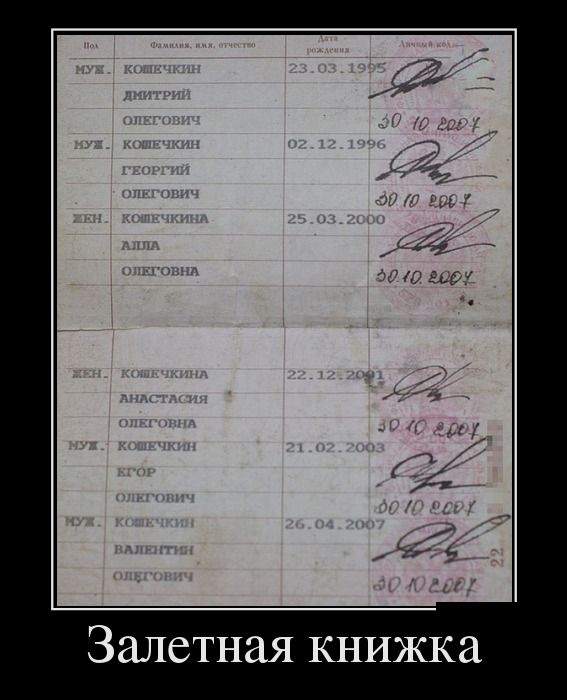 Пол Фамилия, имя, отчество Дата рождения Личный код
МУЖ. КОШЕЧКИН 23.03.1995
ДМИТРИЙ
ОЛЕГОВИЧ 30 10 2007
МУЖ. КОШЕЧКИН 02.12.1996
ГЕОРГИЙ
ОЛЕГОВИЧ 30 10 2007
ЖЕН. КОШЕЧКИНА 25.03.2000
АЛЛА
ОЛЕГОВНА 30.10.2007
ЖЕН. КОШЕЧКИНА 22.12.2001
АНАСТАСИЯ
ОЛЕГОВНА 30 10 2007
МУЖ. КОШЕЧКИН 21.02.2003
ЕГОР
ОЛЕГОВИЧ 30.10.2007
МУЖ. КОШЕЧКИН 26.04.2007
ВАЛЕНТИН
ОЛЕГОВИЧ 30 10 2007
22
Залетная книжка